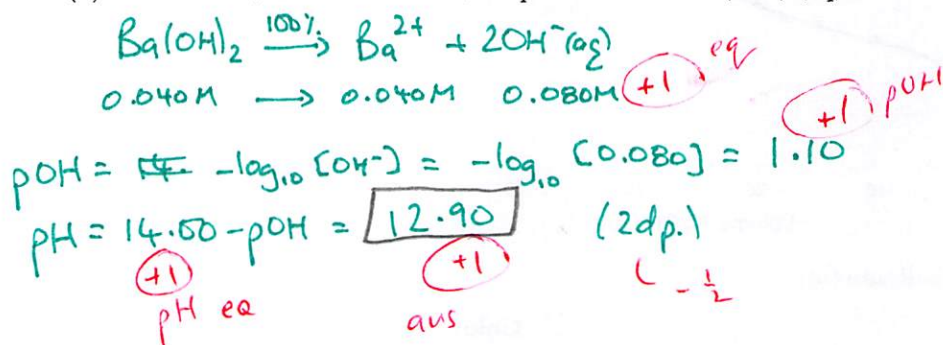 Ba(OH)₂ 100%→ Ba²⁺ + 2OH⁻(aq)
0.040M → 0.040M 0.080M +1 eq
+1 pOH
pOH = -log₁₀ [OH⁻] = -log₁₀ [0.080] = 1.10
pH = 14.00 - pOH = 12.90 (2dp.)
+1 +1 ( - ½
pH eq ans